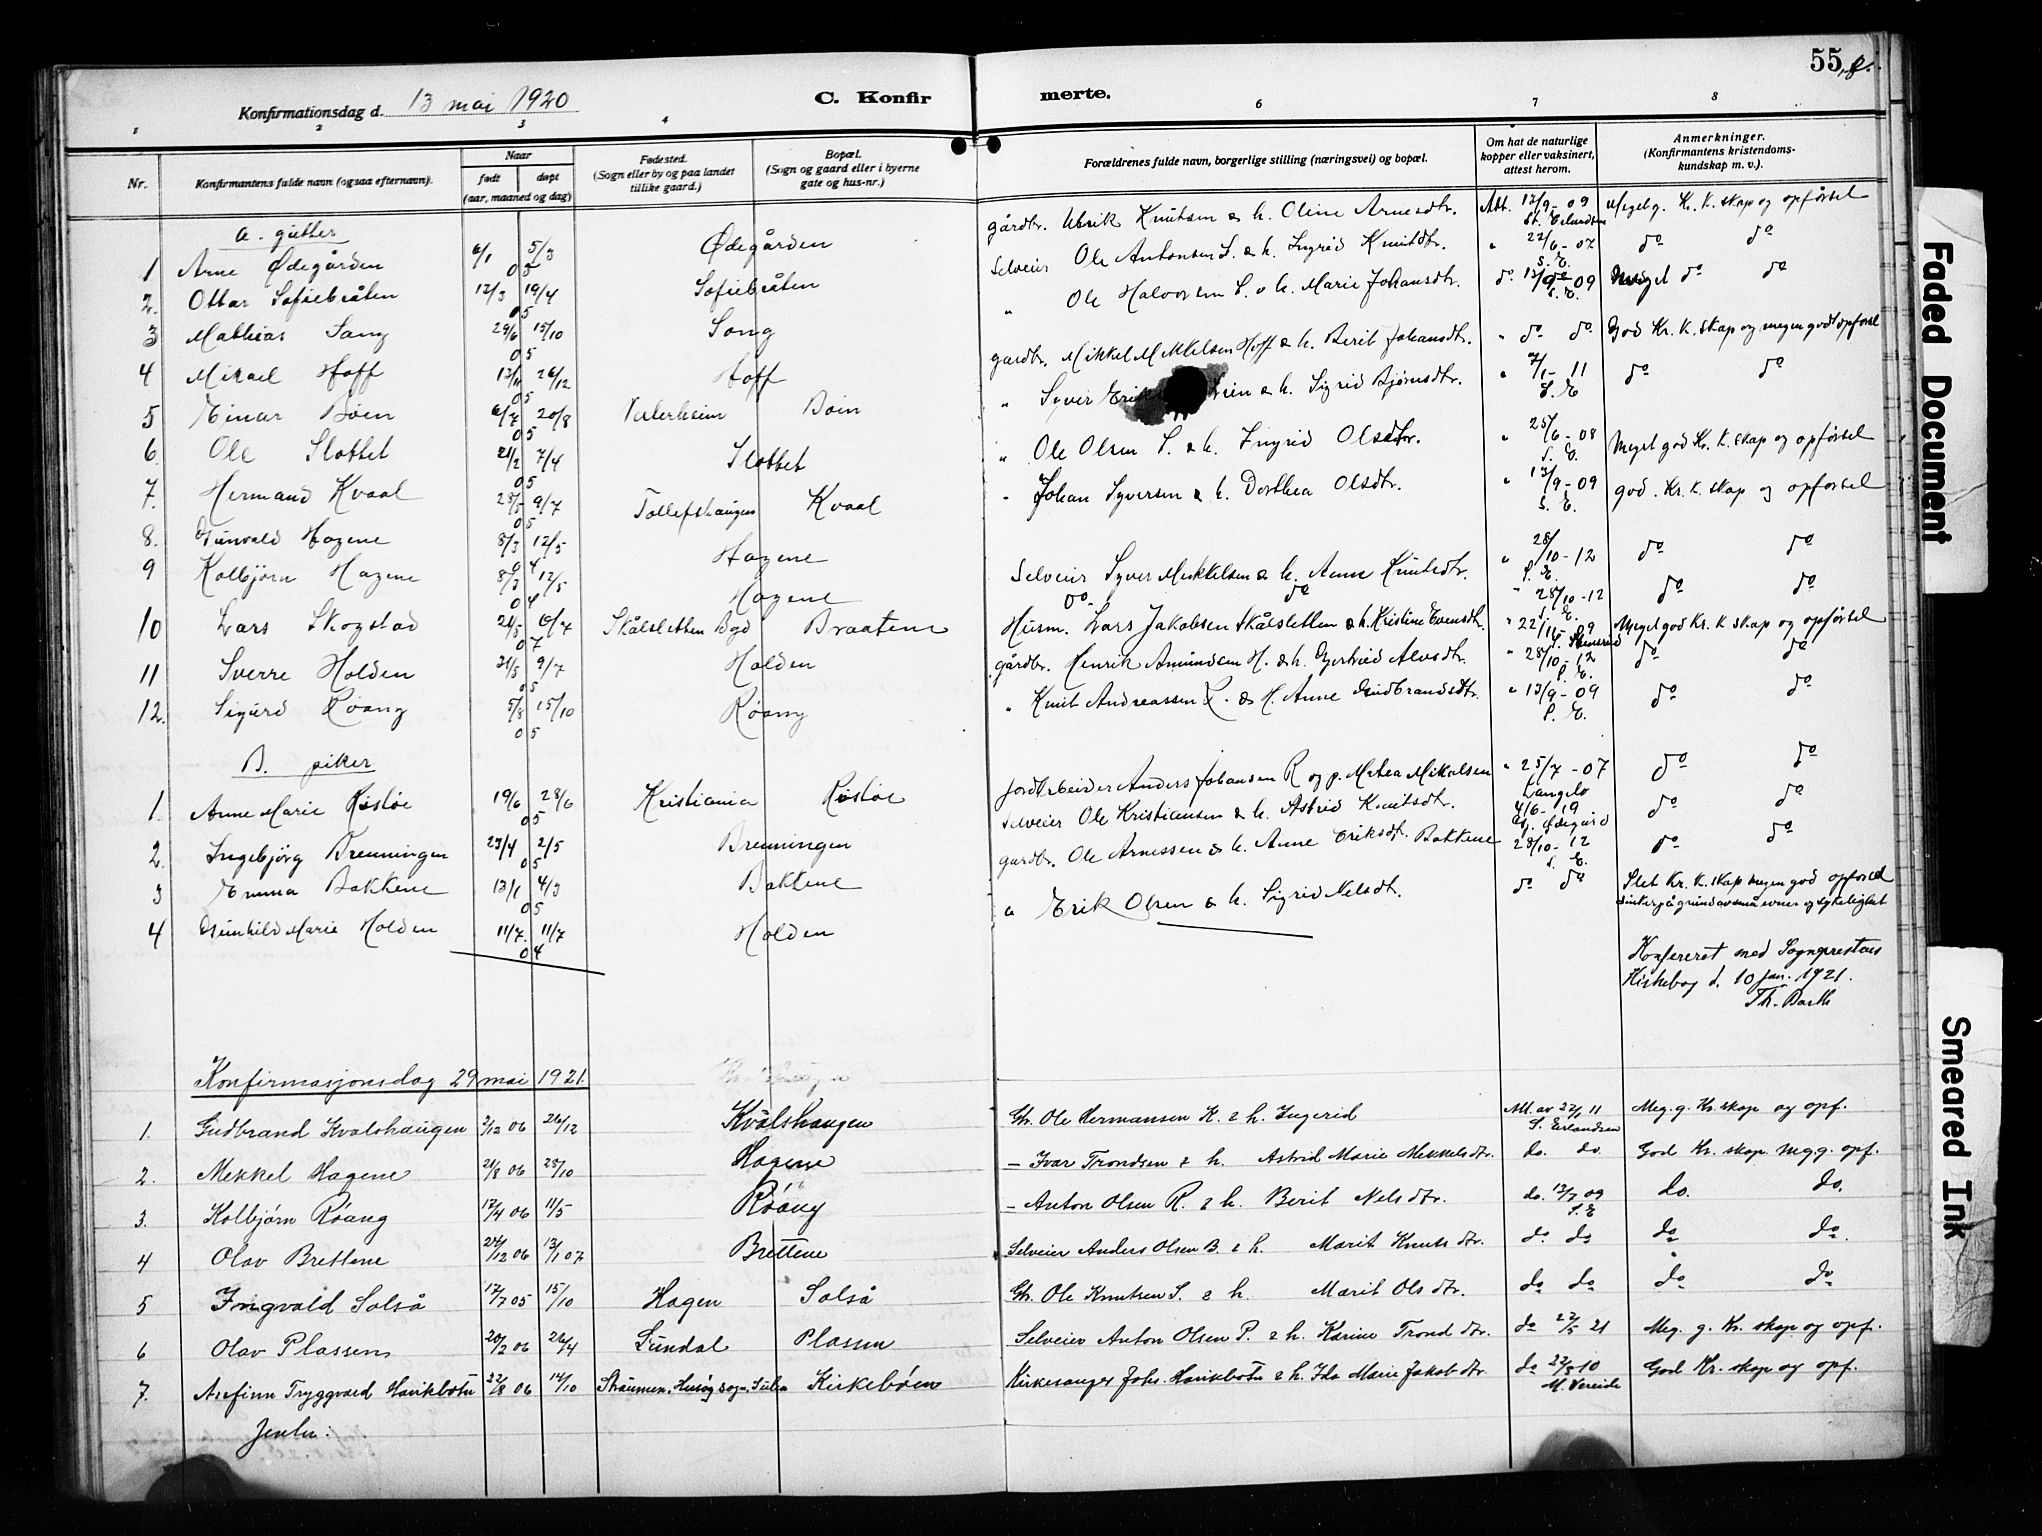 55
Konfirmationsdag d. 13 mai 1920
C. Konfirmerte.
1 2 3 4 6 7 8
Nr.
Konfirmantens fulde navn (ogsaa efternavn).
Naar
født døpt
(aar, maaned og dag)
Fødested.
(Sogn eller by og paa landet tillike gaard.)
Bopæl.
(Sogn og gaard eller i byerne gate og hus-nr.)
Forældrenes fulde navn, borgerlige stilling (næringsvei) og bopæl.
Om hat de naturlige kopper eller vaksinert, attest herom.
Anmerkninger.
(Konfirmantens kristendomskundskap m. v.).
a. gutter
1 Arne Ødegården 6/1 5/3 05 Ødegården gårdbr. Ulrik Knutsen & h. Oline Arnesdtr. Att. 13/9-09 Meget g. Kr. k. skap og opførsel
2. Ottar Sofiebråten 12/3 19/4 05 Sofiebråten Selveier Ole Antonsen S. & h. Ingrid Knutsdtr. " 22/6-07 S. E. do do
3 Mathias Sang 29/6 15/10 05 Song " Ole Halvorsen S. & h. Marie Johansdtr. do 13/9-09 S. E. Meget do do
4 Mikael Hoff 13/11 26/12 05 Hoff gardbr. Mikkel Mikkelsen Hoff & h. Berit Johansdtr. " do do. God Kr. k. skap og megen god opførsel
5 Einar Bøen 6/7 20/8 05 Bøin " Syver Erik Bøen & h. Sigrid Bjørnsdtr. " 7/1-11 S. E. do do
6. Ole Slottet 21/2 7/4 05 Slottet " Ole Olsen S. & h. Ingrid Olsdtr. " 25/6-08 S. E. Meget god Kr. k. skap og opførsel
7. Hermand Kvaal 28/5 9/7 05 Tollefshaugen Kvaal " Johan Syversen & h. Dorthea Olsdtr. " 13/9-09 S. E. god Kr. k. skap og opførsel
8. Gunvald Hagene 8/3 12/5 04 Hagene Selveier Syver Mekkelsen & h. Anne Knutsdtr. " 28/10-12 S. E. do do
9 Kolbjørn Hagene 8/3 12/5 04 Hagene do. do " 28/10-12 S. E. do do
10 Lars Skogstad 21/5 6/7 07 Skålsletten Bgd Braatene Husm. Lars Jakobsen Skålsletten & h. Kristine Evensdtr. " 22/11-09 Meget god Kr. k. skap og opførsel
11 Sverre Holden 21/5 9/7 05 Holden gårdbr. Henrik Amundsen H. & h. Gertrud Alvsdtr. " 28/10-12 S. E. do do
12. Sigurd Røang 5/8 15/10 05 Røang " Knut Andreassen R. & H. Anne Gudbrandsdtr. " 13/9-09 S. E. do do
B. piker
1. Anne Marie Røstøe 19/6 28/6 05 Kristiania Røstøe Jordarbeider Anders Johansen R og p. Mathea Mikalsen " 25/7-07 Langslo do do
2. Ingebjørg Brenningen 23/4 2/5 05 Brenningen Selveier Ole Kristiansen & h. Astrid Knutsdtr. 4/6-19 Ødegård do do
3 Emma Bakkene 13/1 4/3 05 Bakkene gardbr. Ole Arnessen & h. Anne Eriksdt. Bakkene 28/10-12 S. E. do do
4 Gunhild Marie Holden 11/7. 11/7 04 Holden " Erik Olsen & h. Sigrid Nelsdt. do do Slet Kr. k. skap megen god opførsel
sinker på grund av små evner og sykelighet
Konfereret med Sogneprestens
Kirkebog d. 10 jan. 1921.
Th. Barth
Konfirmasjonsdag 29 mai 1921.
1. Gudbrand Kvalshaugen 2/12 06 26/12 Kvålshaugen Gr. Ole Hermansen K. & h. Ingerid Att. av 22/1 11 S. Erlandsen Meg. g. Kr. skap og opf.
2. Mekkel Hagene 21/8 06 28/10 Hagene – Ivar Trondsen & h. Astrid Marie Mekkelsdtr. do. do. God Kr. skap. mg.g. opf.
3. Kolbjørn Røang 17/4 06 11/5 Røang – Anton Olsen R. & h. Berit Nelsdtr. do. 13/7 09 S. E do. do.
4 Olav Brettene 24/12 06 13/1 07 Brettene Selveier Anders Olsen B. & h. Marit Knutsdtr. do do do do.
5 Ingvald Solså 17/7 05 15/10 Hagen Solså Gr. Ole Knutsen S. & h. Marit Olsdtr. do do do do
6 Olav Plassen 20/2 06 26/4 Sundal Plassen Selveier Anton Olsen P. & h. Karine Tronddtr. do 22/5 21 Meg. g. Kr. skap og opf.
7. Arefinn Tryggvard Havikbotn 22/8 06 14/10 Straumen, Husøy sogn, Sulen Kirkebøen Kirkesanger Johs. Havikbotn & h. Ida Marie Jakobdtr. do 22/8 10 M. Vereide God Kr. skap og opf.
Jenter:
Faded Document
Smeared Ink